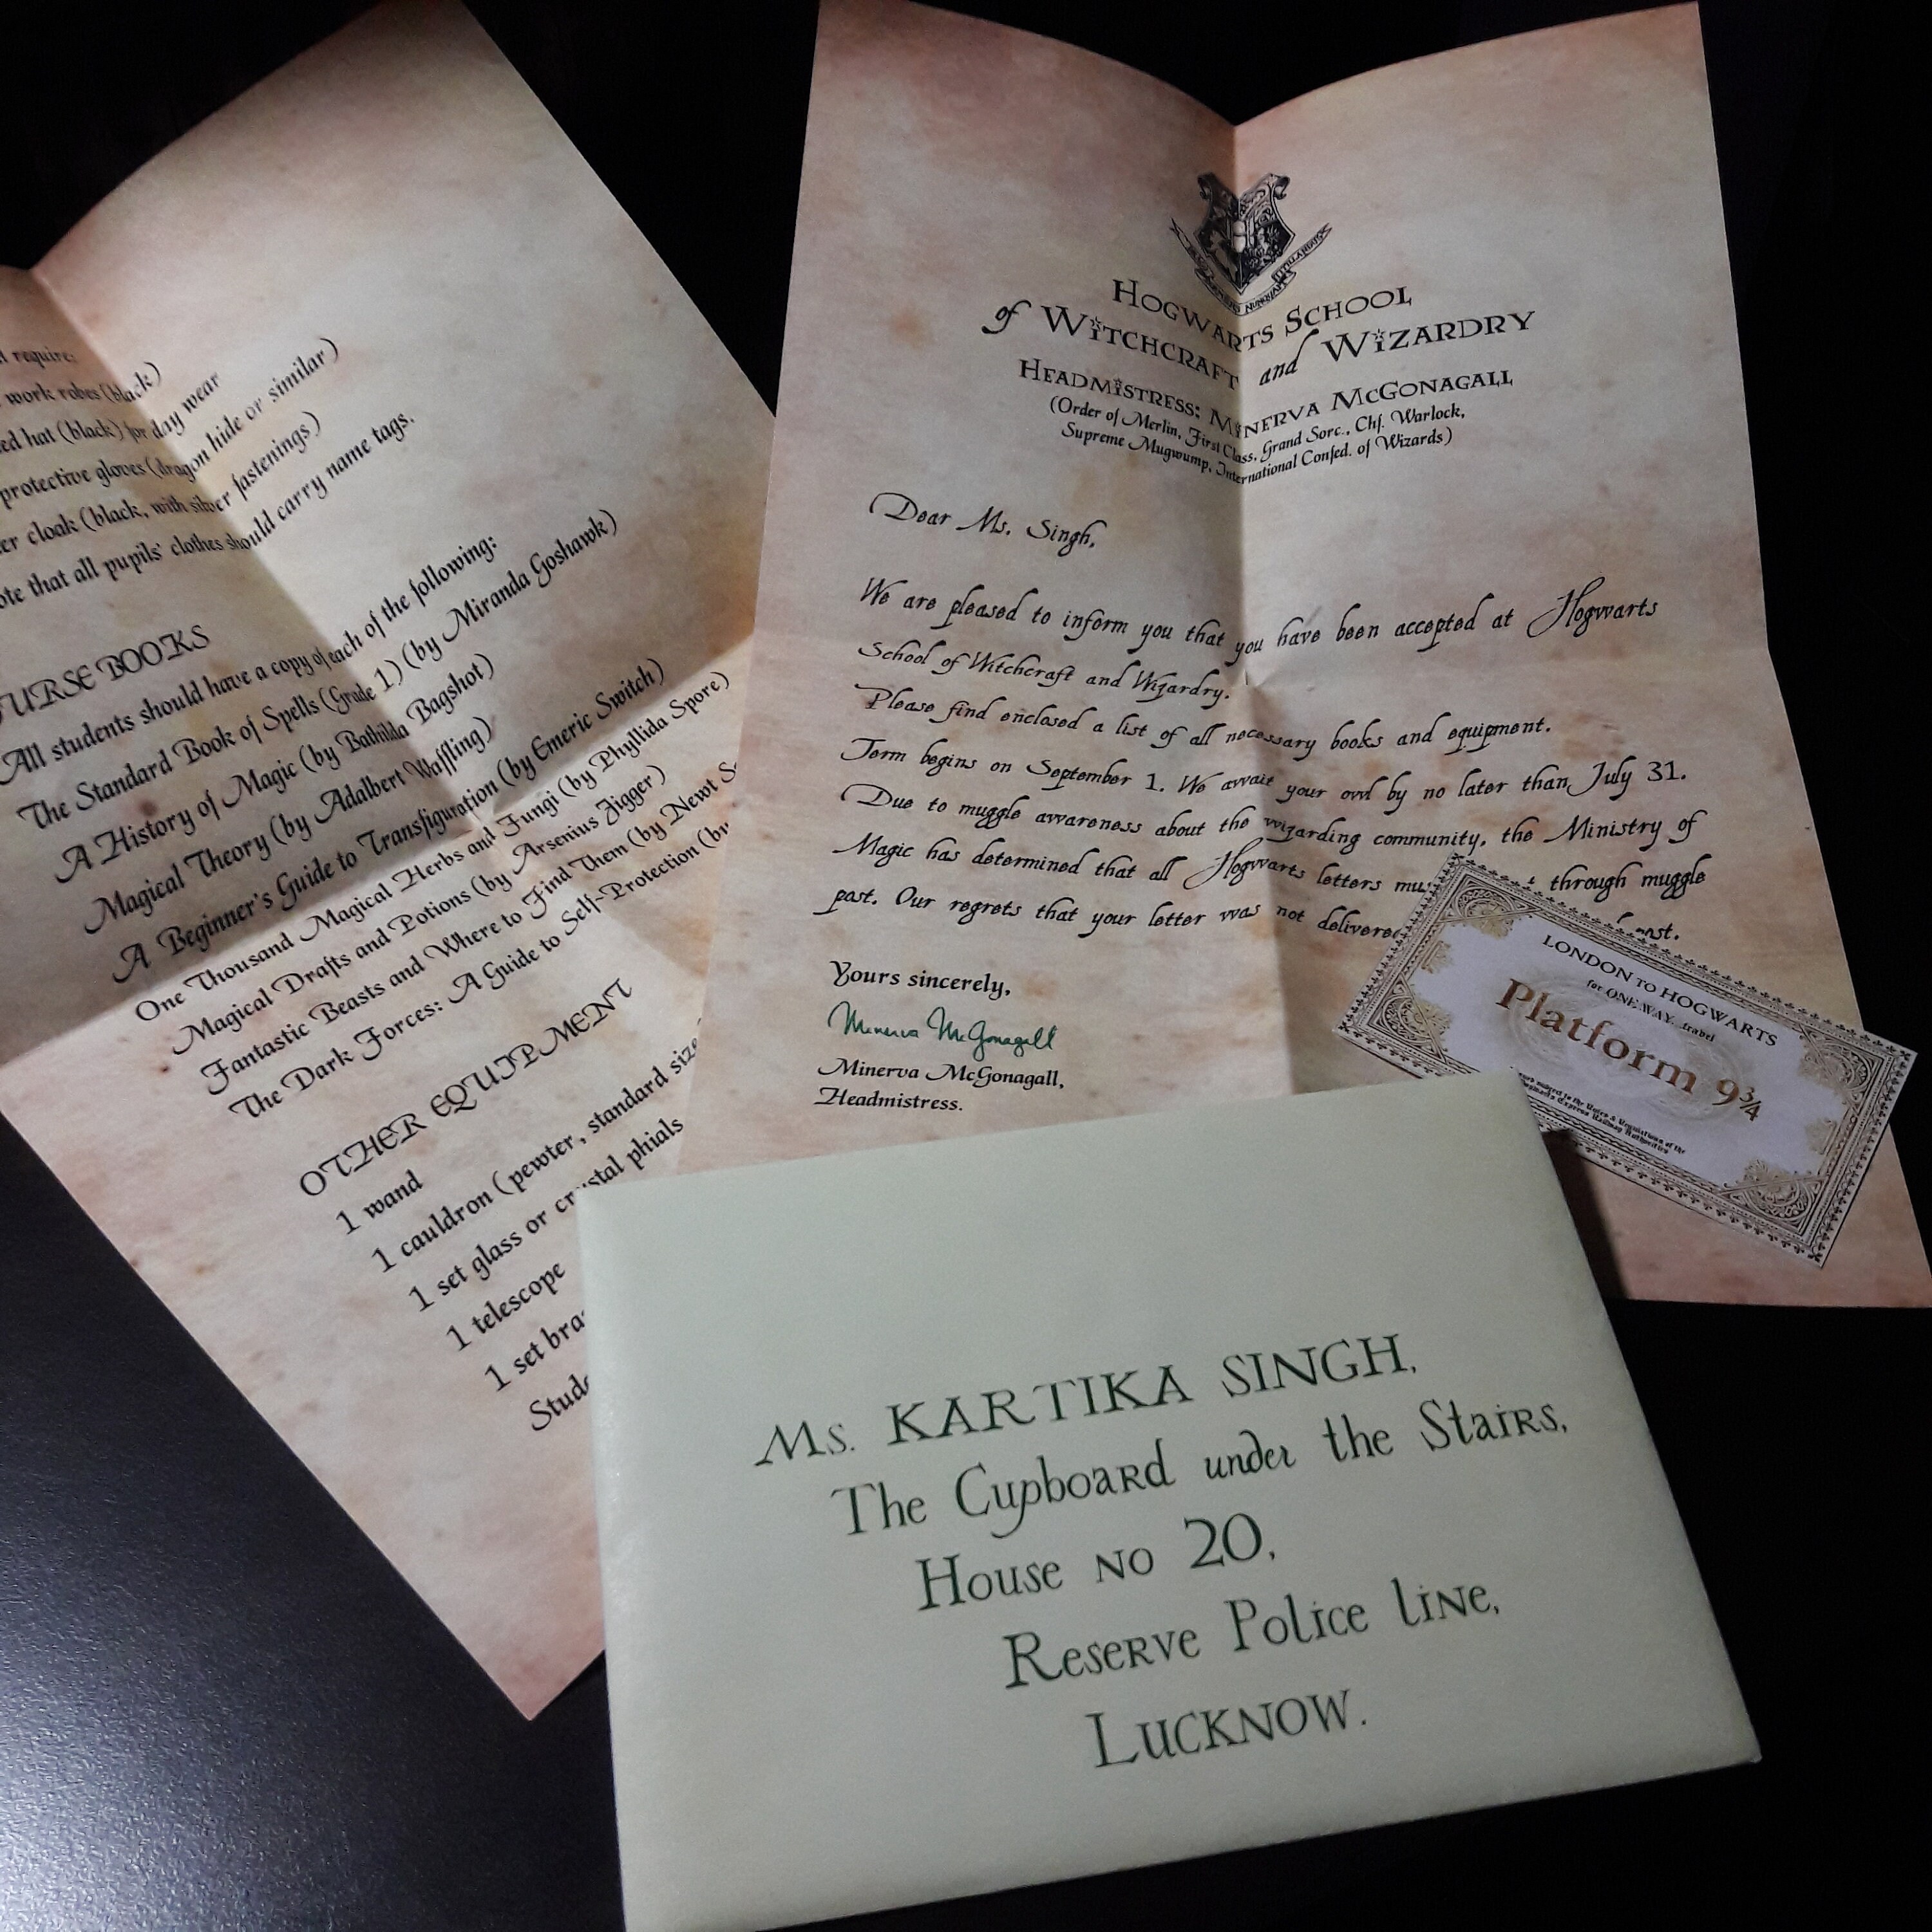 l require:
work robes (black)
ed hat (black) for day wear
protective gloves (dragon hide or similar)
er cloak (black, with silver fastenings)
ote that all pupils' clothes should carry name tags.
URSE BOOKS
All students should have a copy of each of the following:
The Standard Book of Spells (Grade 1) (by Miranda Goshawk)
A History of Magic (by Bathilda Bagshot)
Magical Theory (by Adalbert Waffling)
A Beginner's Guide to Transfiguration (by Emeric Switch)
One Thousand Magical Herbs and Fungi (by Phyllida Spore)
Magical Drafts and Potions (by Arsenius Jigger)
Fantastic Beasts and Where to Find Them (by Newt S
The Dark Forces: A Guide to Self-Protection (by
OTHER EQUIPMENT
1 wand
1 cauldron (pewter, standard size
1 set glass or crystal phials
1 telescope
1 set bra
Stud
HOGWARTS SCHOOL
of WITCHCRAFT and WIZARDRY
HEADMISTRESS: MINERVA MCGONAGALL
(Order of Merlin, First Class, Grand Sorc., Chf. Warlock,
Supreme Mugwump, International Confed. of Wizards)
Dear Ms. Singh,
We are pleased to inform you that you have been accepted at Hogwarts
School of Witchcraft and Wizardry.
Please find enclosed a list of all necessary books and equipment.
Term begins on September 1. We await your owl by no later than July 31.
Due to muggle awareness about the wizarding community, the Ministry of
Magic has determined that all Hogwarts letters mu through muggle
post. Our regrets that your letter was not delivered
Yours sincerely,
Minerva McGonagall
Minerva McGonagall,
Headmistress.
LONDON TO HOGWARTS
for ONE WAY travel
Platform 9¾
Ms. KARTIKA SINGH,
The Cupboard under the Stairs,
House no 20,
Reserve Police line,
Lucknow.